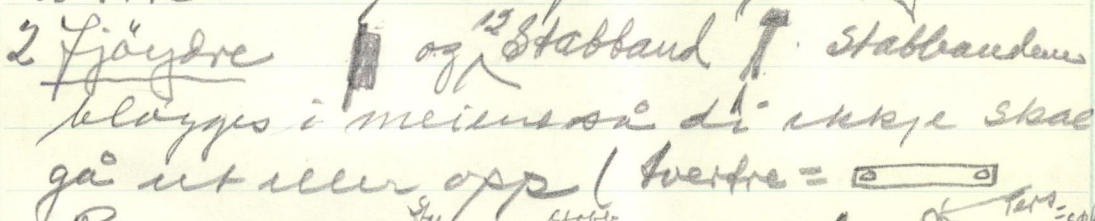 2 Fjöydre og 12 Stabband Stabbandene
bløygges i meiene så di ikkje skal
gå ut eller opp (tvertre =